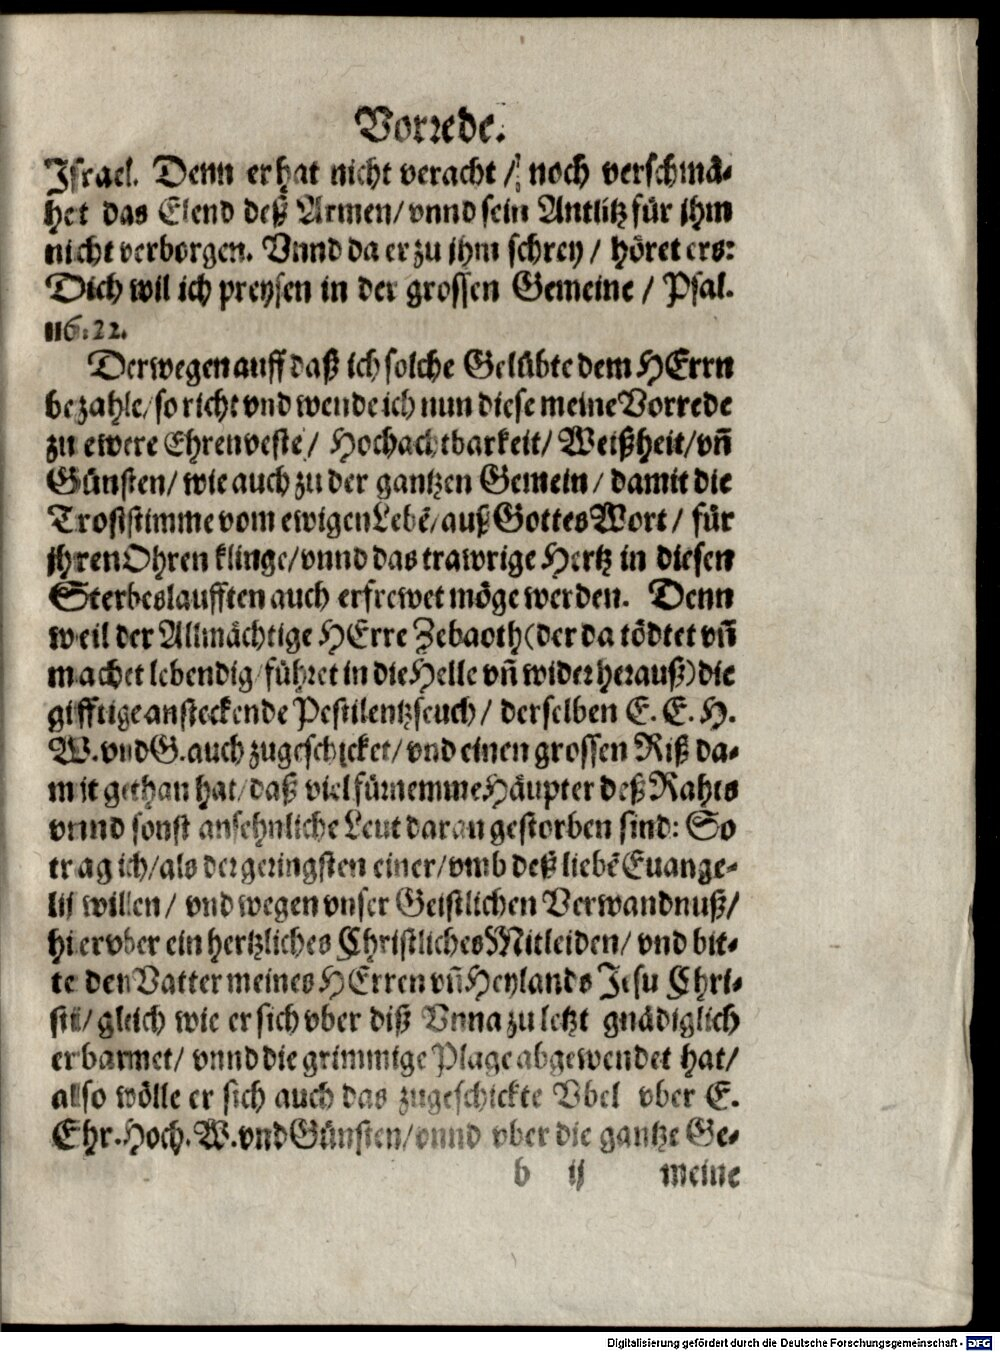 Vorrede.
Israel. Denn er hat nicht veracht / noch verschmä-
het das Elend deß Armen/ vnnd sein Antlitz für jhm
nicht verborgen. Vnnd da er zu jhm schrey / höret ers:
Dich wil ich preysen in der grossen Gemeine / Psal.
116.22.
Derwegen auff daß ich solche Gelübte dem HErrn
bezahle/ so richt vnd wende ich nun diese meine Vorrede
zu ewere Ehrenveste/ Hochachtbarkeit/ Weißheit/ vñ
Günsten/ wie auch zu der gantzen Gemein / damit die
Troststimme vom ewigen Lebẽ/ auß Gottes Wort / für
jhren Ohren klinge/ vnnd das trawrige Hertz in diesen
Sterbeslaufften auch erfrewet möge werden. Denn
weil der Allmächtige HErre Zebaoth (der da tödtet vñ
machet lebendig/ führet in die Helle vñ wider herauß) die
gifftige ansteckende Pestilentzseuch / derselben E. E. H.
W. vnd G. auch zugeschicket/ vnd einen grossen Riß da-
mit gethan hat/ daß viel fürnemme Häupter deß Rahts
vnnd sonst ansehnliche Leut daran gestorben sind: So
trag ich/ als der geringsten einer/ vmb deß liebẽ Euange-
lij willen / vnd wegen vnser Geistlichen Verwandnuß/
hiervber ein hertzliches Christliches Mitleiden/ vnd bit-
te den Vatter meines HErren vñ Heylands Jesu Chri-
sti/ gleich wie er sich vber diß Vnna zu letzt gnädiglich
erbarmet/ vnnd die grimmige Plage abgewendet hat/
also wölle er sich auch das zugeschickte Vbel vber E.
Ehr. Hoch. W. vnd Günsten/ vnnd vber die gantze Ge-
b ij meine
Digitalisierung gefördert durch die Deutsche Forschungsgemeinschaft - DFG